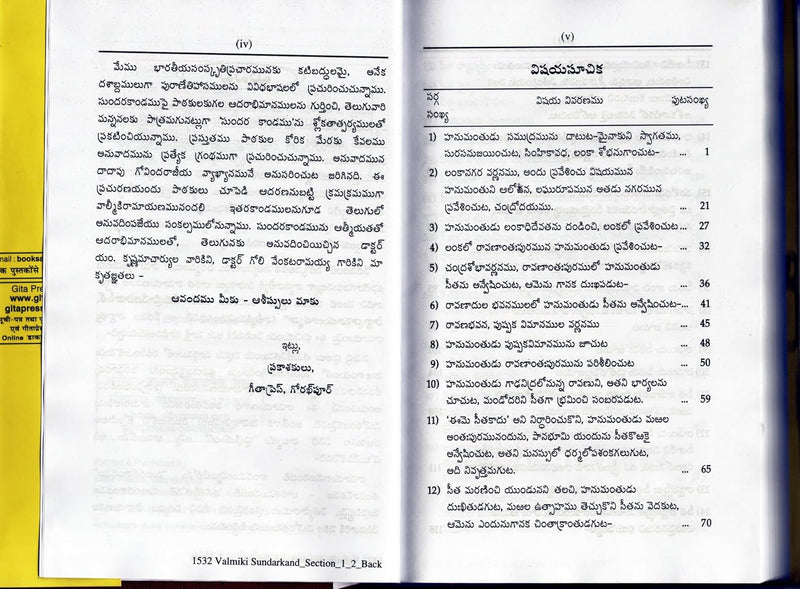 mail : booksa
क पुस्तकोंसे
Gita Pre
www.git
gitapress
सूची-पत्र तथा पु
एवं गीताप्रे
Online डाक
(iv)
మేము భారతీయసంస్కృతిప్రచారమునకు కటిబద్ధులమై, అనేక
దశాబ్దములుగా పురాణేతిహాసములను వివిధభాషలలో ప్రచురించుచున్నాము.
సుందరకాండముపై పాఠకులకుగల ఆదరాభిమానములను గుర్తించి, తెలుగువారి
మన్ననలకు పాత్రమగునట్లుగా 'సుందర కాండము'ను శ్లోకతాత్పర్యములతో
ప్రకటించియున్నాము. ప్రస్తుతము పాఠకుల కోరిక మేరకు కేవలము
అనువాదమును ప్రత్యేక గ్రంథముగా ప్రచురించుచున్నాము. అనువాదమున
దాదాపు గోవిందరాజీయ వ్యాఖ్యానమునే అనుసరించుట జరిగినది. ఈ
ప్రచురణయందు పాఠకులు చూపెడి ఆదరణనుబట్టి క్రమక్రమముగా
వాల్మీకిరామాయణమునందలి ఇతరకాండములనుగూడ తెలుగులో
అనువదింపజేయు సంకల్పములోనున్నాము. సుందరకాండమును ఆత్మీయతతో
ఆదరాభిమానములతో, తెలుగునకు అనువదించియిచ్చిన డాక్టర్
యం. కృష్ణమాచార్యుల వారికిని, డాక్టర్ గోలి వేంకటరామయ్య గారికిని మా
కృతజ్ఞతలు –
ఆనందము మీకు - ఆశీస్సులు మాకు
ఇట్లు,
ప్రకాశకులు,
గీతాప్రెస్, గోరఖ్‌పూర్
1532 Valmiki Sundarkand_Section_1_2_Back
(v)
విషయసూచిక
సర్గ విషయ వివరణము పుటసంఖ్య
సంఖ్య
1) హనుమంతుడు సముద్రమును దాటుట-మైనాకుని స్వాగతము,
సురసమజయించుట, సింహికావధ, లంకా శోభనుగాంచుట– ... 1
2) లంకానగర వర్ణనము, అందు ప్రవేశించు విషయమున
హనుమంతుని ఆలోచన, లఘురూపమున అతడు నగరమున
ప్రవేశించుట, చంద్రోదయము. ... 21
3) హనుమంతుడు లంకాధిదేవతను దండించి, లంకలో ప్రవేశించుట– 27
4) లంకలో రావణాంతఃపురమున హనుమంతుడు ప్రవేశించుట– ... 32
5) చంద్రశోభావర్ణనము, రావణాంతఃపురములో హనుమంతుడు
సీతను అన్వేషించుట, ఆమెను గానక దుఃఖపడుట– ... 36
6) రావణాదుల భవనములలో హనుమంతుడు సీతను అన్వేషించుట–... 41
7) రావణభవన, పుష్పక విమానముల వర్ణనము ... 45
8) హనుమంతుడు పుష్పకవిమానమును జూచుట ... 48
9) హనుమంతుడు రావణాంతఃపురమును పరిశీలించుట ... 50
10) హనుమంతుడు గాఢనిద్రలోనున్న రావణుని, అతని భార్యలను
చూచుట, మండోదరిని సీతగా భ్రమించి సంబరపడుట. ... 59
11) 'ఈమె సీతకాదు' అని నిర్ధారించుకొని, హనుమంతుడు మఱల
అంతఃపురమునందును, పానభూమి యందును సీతకొఱకై
అన్వేషించుట, అతని మనస్సులో ధర్మలోపశంకగలుగుట,
అది నివృత్తమగుట. ... 65
12) సీత మరణించి యుండునని తలచి, హనుమంతుడు
దుఃఖితుడగుట, మఱల ఉత్సాహము తెచ్చుకొని సీతను వెదకుట,
ఆమెను ఎందునుగానక చింతాక్రాంతుడగుట– ... 70